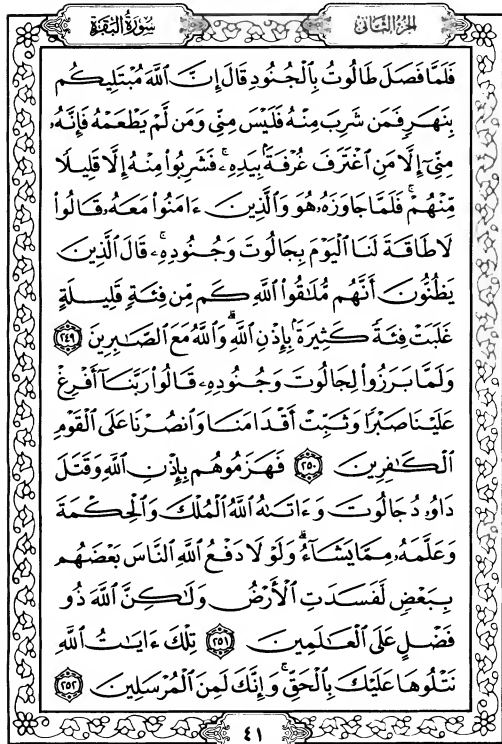 سُورَةُ البَقَرَةِ
الجُزءُ الثَّانِي
فَلَمَّا فَصَلَ طَالُوتُ بِٱلْجُنُودِ قَالَ إِنَّ ٱللَّهَ مُبْتَلِيكُم
بِنَهَرٍ فَمَن شَرِبَ مِنْهُ فَلَيْسَ مِنِّى وَمَن لَّمْ يَطْعَمْهُ فَإِنَّهُۥ
مِنِّىٓ إِلَّا مَنِ ٱغْتَرَفَ غُرْفَةًۢ بِيَدِهِۦۚ فَشَرِبُوا۟ مِنْهُ إِلَّا قَلِيلًا
مِّنْهُمْۚ فَلَمَّا جَاوَزَهُۥ هُوَ وَٱلَّذِينَ ءَامَنُوا۟ مَعَهُۥ قَالُوا۟
لَا طَاقَةَ لَنَا ٱلْيَوْمَ بِجَالُوتَ وَجُنُودِهِۦۚ قَالَ ٱلَّذِينَ
يَظُنُّونَ أَنَّهُم مُّلَٰقُوا۟ ٱللَّهِ كَم مِّن فِئَةٍ قَلِيلَةٍ
غَلَبَتْ فِئَةً كَثِيرَةًۢ بِإِذْنِ ٱللَّهِۗ وَٱللَّهُ مَعَ ٱلصَّٰبِرِينَ ٢٤٩
وَلَمَّا بَرَزُوا۟ لِجَالُوتَ وَجُنُودِهِۦ قَالُوا۟ رَبَّنَآ أَفْرِغْ
عَلَيْنَا صَبْرًا وَثَبِّتْ أَقْدَامَنَا وَٱنصُرْنَا عَلَى ٱلْقَوْمِ
ٱلْكَٰفِرِينَ ٢٥٠ فَهَزَمُوهُم بِإِذْنِ ٱللَّهِ وَقَتَلَ
دَاوُۥدُ جَالُوتَ وَءَاتَىٰهُ ٱللَّهُ ٱلْمُلْكَ وَٱلْحِكْمَةَ
وَعَلَّمَهُۥ مِمَّا يَشَآءُۗ وَلَوْلَا دَفْعُ ٱللَّهِ ٱلنَّاسَ بَعْضَهُم
بِبَعْضٍ لَّفَسَدَتِ ٱلْأَرْضُ وَلَٰكِنَّ ٱللَّهَ ذُو
فَضْلٍ عَلَى ٱلْعَٰلَمِينَ ٢٥١ تِلْكَ ءَايَٰتُ ٱللَّهِ
نَتْلُوهَا عَلَيْكَ بِٱلْحَقِّۚ وَإِنَّكَ لَمِنَ ٱلْمُرْسَلِينَ ٢٥٢
٤١